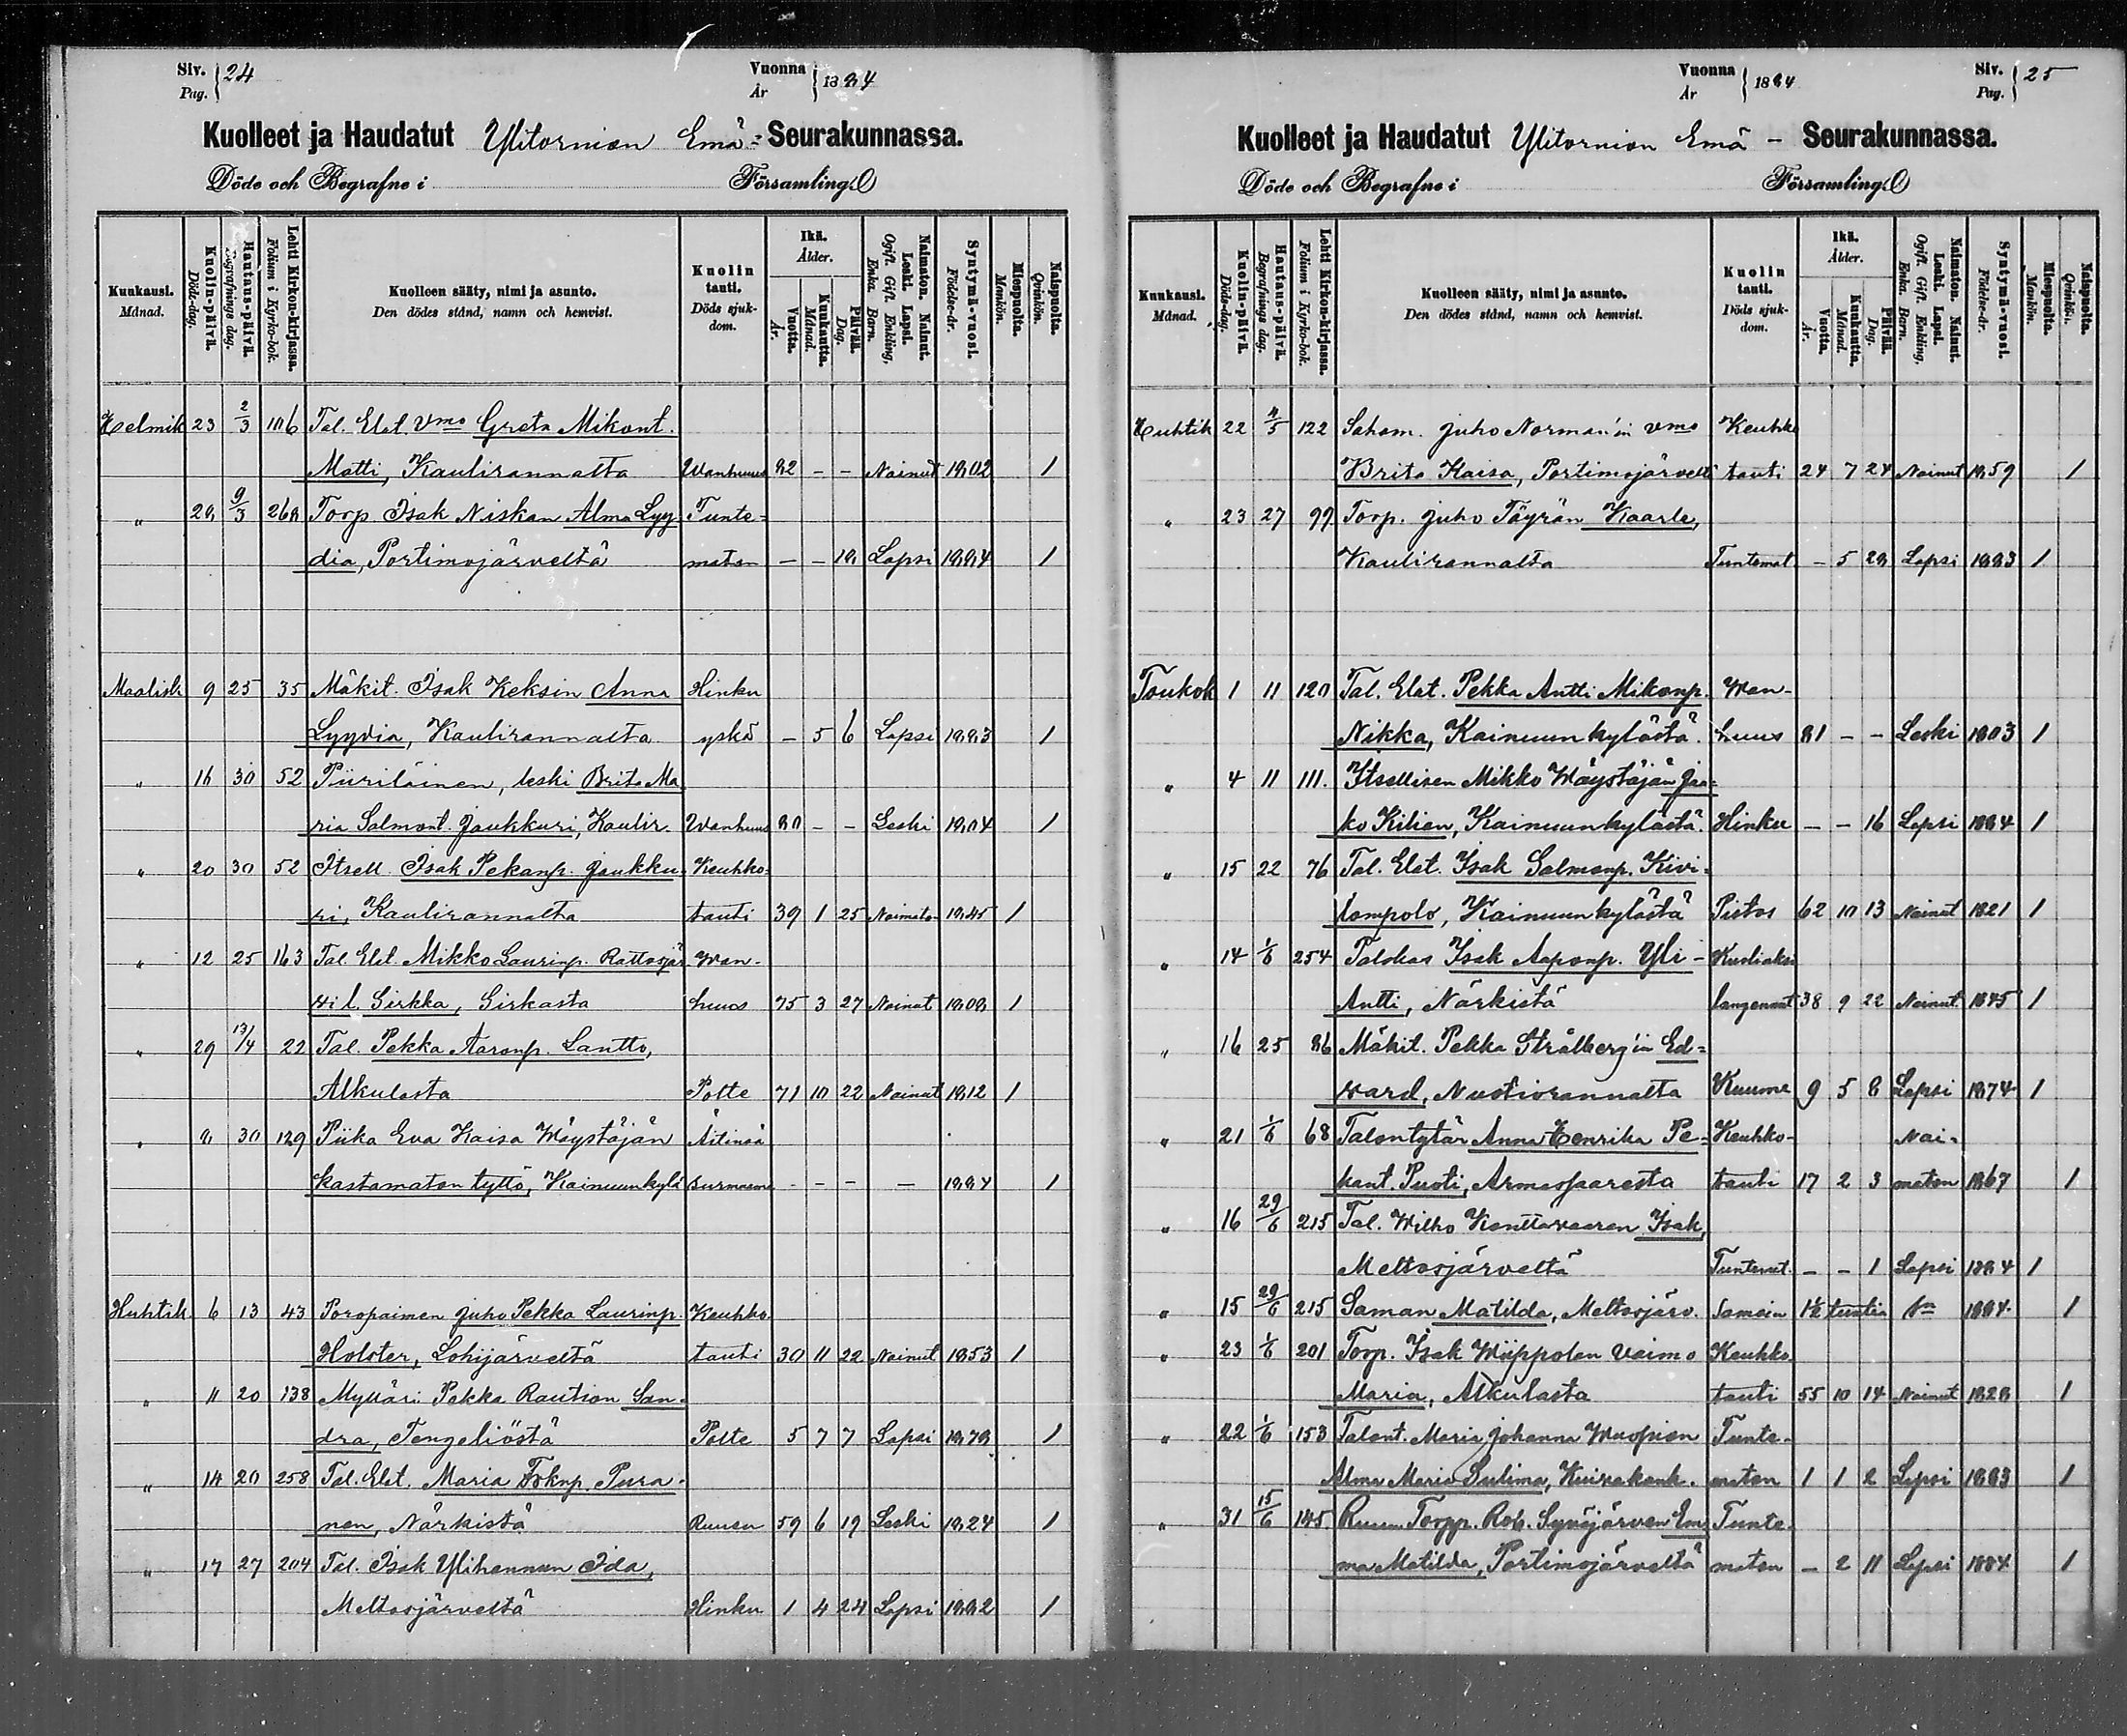 Siv. Pag. 24
Vuonna År 1884
Kuolleet ja Haudatut Ylitornion Emä-Seurakunnassa.
Döde och Begrafne i Församling.
Kuukausi. Månad.
Kuolin-päivä. Döds-dag.
Hautaus-päivä. Begrafnings dag.
Lehti Kirkon-kirjassa. Folium i Kyrko-bok.
Kuolleen sääty, nimi ja asunto. Den dödes stånd, namn och hemvist.
Kuolin tauti. Döds sjukdom.
Ikä. Ålder.
Vuotta. År.
Kuukautta. Månad.
Päivää. Dag.
Naimaton. Nainut. Leski. Lapsi. Ogift. Gift. Enkling, Enka. Barn.
Syntymä-vuosi. Födelse-år.
Miespuolta. Mankön.
Naispuolta. Qvinkön.
Helmik 23 2/3 106 Tal. Elat. Vmo Greta Mikont.
Matti, Kaulirannalta Wanhuus 82 - - Nainut 1802 1
" 28 9/3 268 Torp. Isak Niskan Alma Lyy Tunte=
dia, Portimojärveltä maton - - 18 Lapsi 1884 1
Maalisk 9 25 35 Mäkit. Isak Keksin Anna Hinku
Lyydia, Kaulirannalta yskä - 5 6 Lapsi 1883 1
" 16 30 52 Piiriläinen, leski Brita Ma
ria Salmont. Jaukkuri, Kaulir. Wanhuus 80 - - Leski 1804 1
" 20 30 52 Itsell. Isak Pekanp. Jaukku- Keuhko-
ri, Kaulirannalta tauti 39 1 25 Naimato 1845 1
" 12 25 163 Tal. Elat. Mikko Laurinp. Rattosjär Wan-
vi l. Sirkka, Sirkasta huus 75 3 27 Nainut 1808 1
" 29 13/4 22 Tal. Pekka Aaronp. Lantto,
Alkulasta Polte 71 10 22 Nainut 1812 1
" 8 30 129 Piika Eva Kaisa Wäystäjän Äitinsä
kastamaton tyttö, Kainuunkylä surmaama - - - - 1884 1
Huhtik 6 13 43 Poropaimen Juho Pekka Laurinp. Keuhko
Holster, Lohijärveltä tauti 30 11 22 Nainut 1853 1
" 11 20 138 Mylläri Pekka Raution San-
dra, Tengeliöstä Polte 5 7 7 Lapsi 1878 1
" 14 20 258 Tal. Elat. Maria Pura-
nen, Närkistä Ruusu 59 6 19 Leski 1824 1
" 17 27 204 Tal. Isak Ylihannun Ida,
Meltosjärveltä Hinku 1 4 24 Lapsi 1882 1
Vuonna År 1884
Siv. Pag. 25
Kuolleet ja Haudatut Ylitornion Emä - Seurakunnassa.
Döde och Begrafne i Församling.
Kuukausi. Månad.
Kuolin-päivä. Döds-dag.
Hautaus-päivä. Begrafnings dag.
Lehti Kirkon-kirjassa. Folium i Kyrko-bok.
Kuolleen sääty, nimi ja asunto. Den dödes stånd, namn och hemvist.
Kuolin tauti. Döds sjukdom.
Ikä. Ålder.
Vuotta. År.
Kuukautta. Månad.
Päivää. Dag.
Naimaton. Nainut. Leski. Lapsi. Ogift. Gift. Enkling, Enka. Barn.
Syntymä-vuosi. Födelse-år.
Miespuolta. Mankön.
Naispuolta. Qvinkön.
Huhtik 22 4/5 122 Saham. Juho Norman'in vmo Keuhko
Brita Kaisa, Portimojärvelt tauti 24 7 24 Nainut 1859 1
" 23 27 99 Torp. Juho Täyrän Kaarle,
Kaulirannalta Tuntemat - 5 28 Lapsi 1883 1
Toukok 1 11 120 Tal. Elat. Pekka Antti Mikonp. Wan-
Nikka, Kainuunkylästä. huus 81 - - Leski 1803 1
" 4 11 111. Itsellisen Mikko Wäystäjän Jaa=
ko Kilian, Kainuunkylästä. Hinku - - 16 Lapsi 1884 1
" 15 22 76 Tal. Elat. Isak Salmonp. Kivi-
lompolo, Kainuunkylästä Pistos 62 10 13 Nainut 1821 1
" 14 1/6 254 Talokas Isak Aaponp. Yli- Kuoliaksi
Antti, Närkistä langennut 38 9 22 Nainut 1845 1
" 16 25 86 Mäkit. Pekka Strålberg'in Ed=
vard, Nuotiorannalta Kuume 9 5 8 Lapsi 1874 1
" 21 1/6 68 Talontytär Anna Henrika Pe- Keuhko- Nai-
kant. Puoti, Armasaaresta tauti 17 2 3 maton 1867 1
" 16 29/6 215 Tal. Wilho Kenttävaaran Isak,
Meltosjärveltä Tuntemat. - - 1 Lapsi 1884 1
" 15 29/6 215 Saman Matilda, Meltosjärv. Samoin 1½ tuntia 1884 1
" 23 1/6 201 Torp. Isak Wiippolan Vaimo Keuhko
Maria, Alkulasta tauti 55 10 14 Nainut 1828 1
" 22 1/6 153 Talont. Maria Johanna Wuopion Tunte-
Alma Maria Sulima, Kuivakank. maton 1 1 2 Lapsi 1883 1
" 31 15/6 145 Ruun. Torpp. Rob. Syväjärven Em Tunte-
ma Matilda, Portimojärveltä maton - 2 11 Lapsi 1884 1